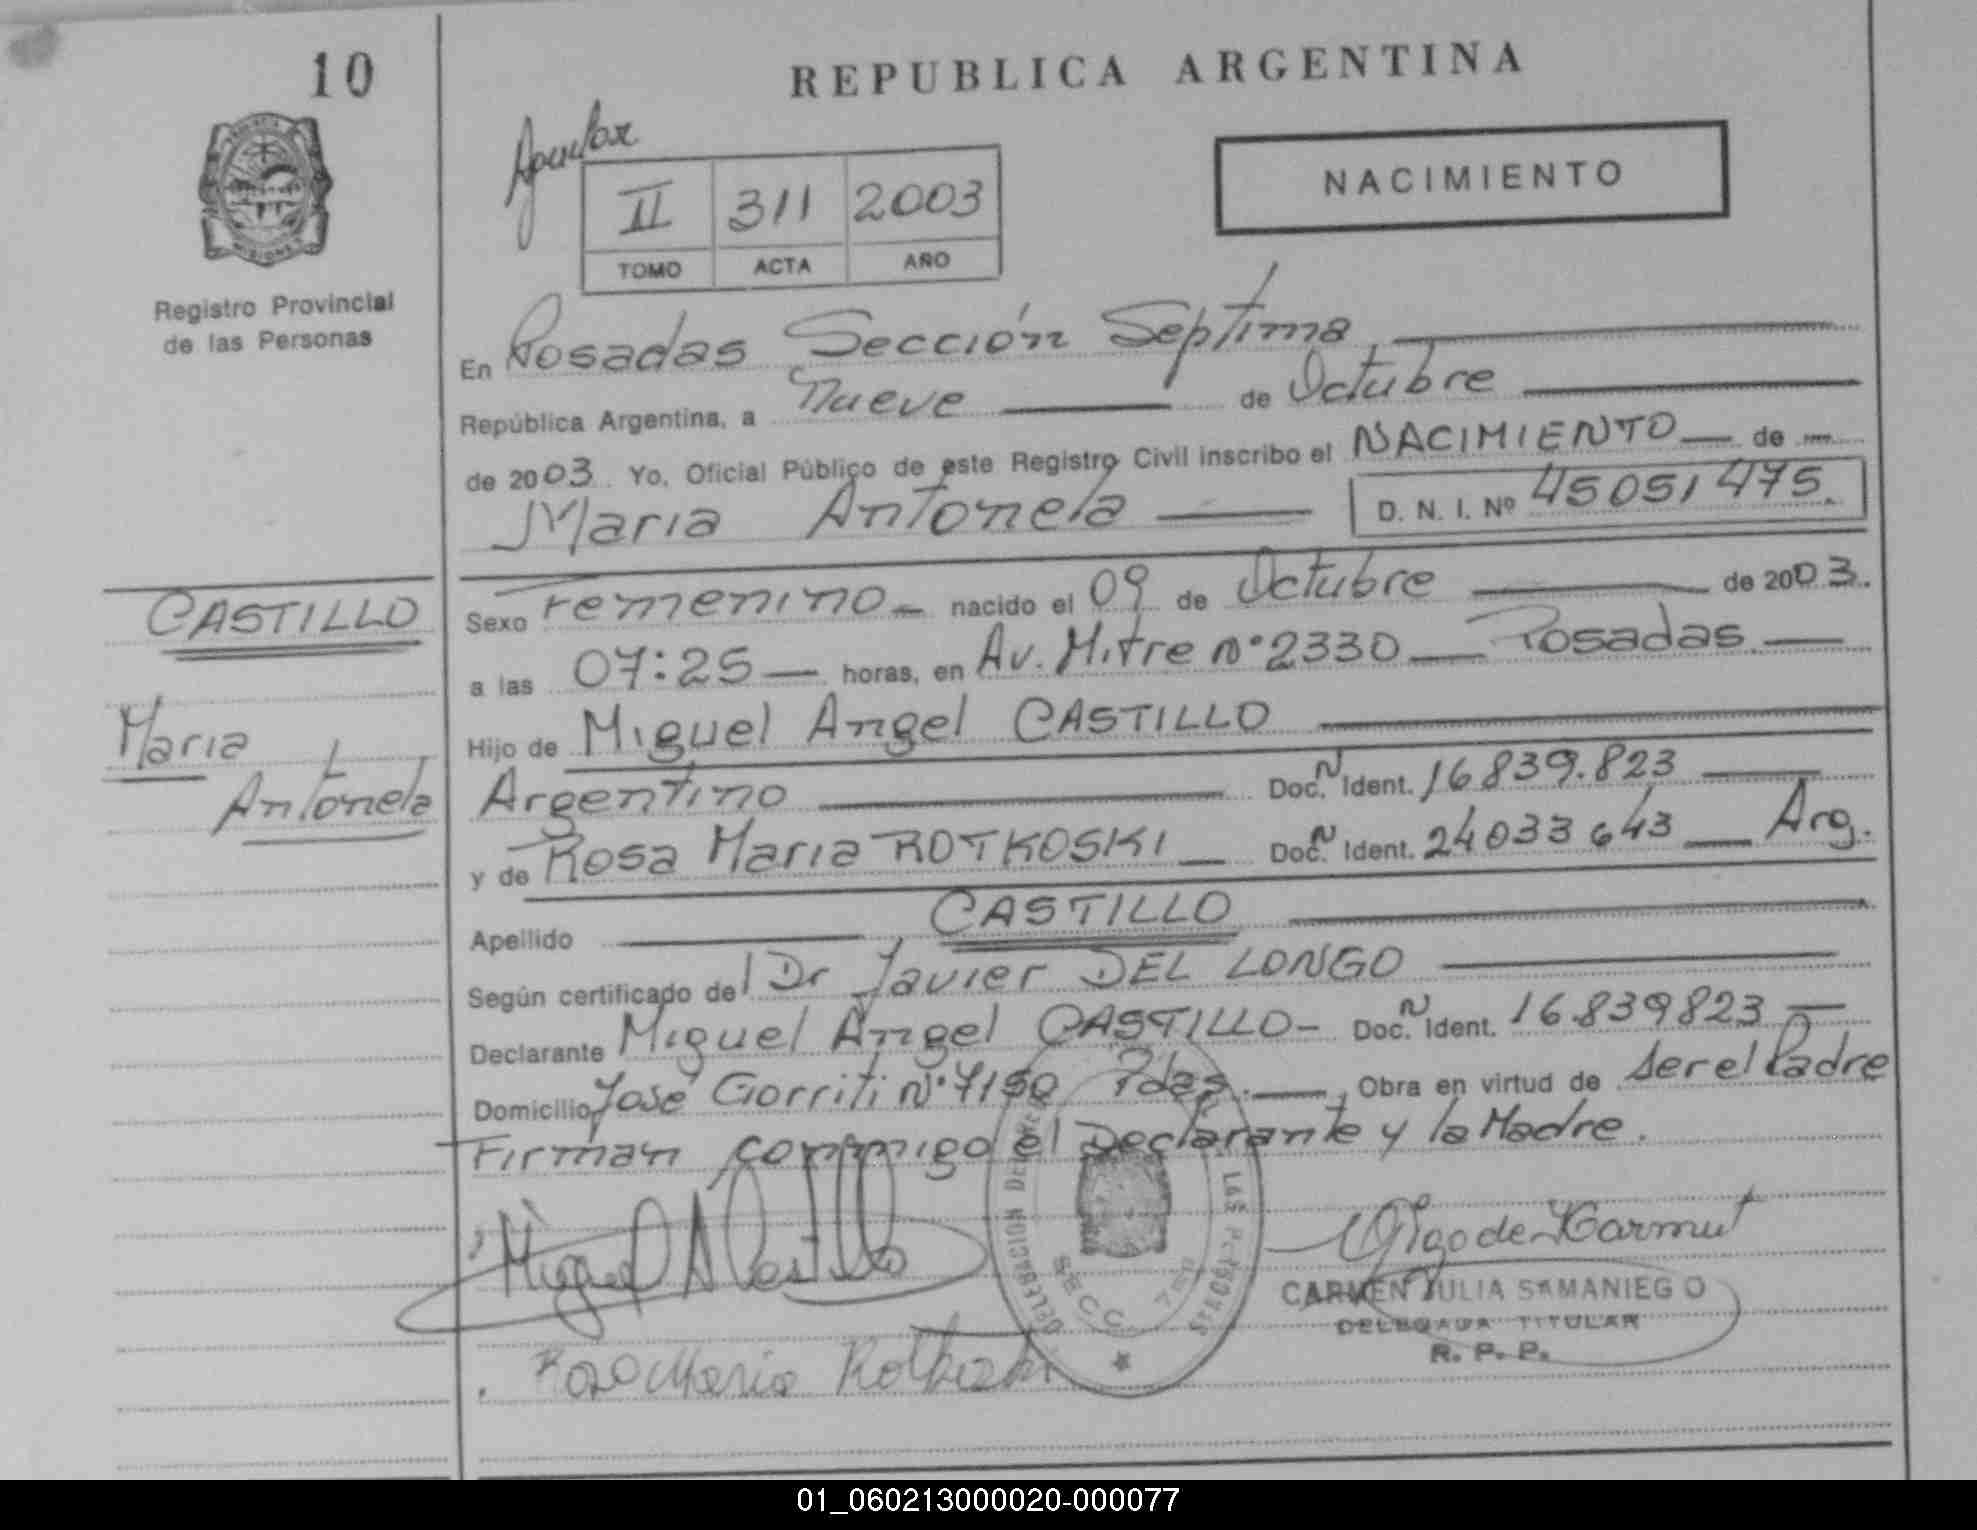 10
REPUBLICA ARGENTINA
NACIMIENTO
II 311 2003
TOMO ACTA AÑO
Registro Provincial
de las Personas
En Posadas Sección Septima
República Argentina, a Nueve de Octubre
de 2003 Yo, Oficial Público de este Registro Civil inscribo el NACIMIENTO de
Maria Antonela D. N. I. Nº 45051475.
CASTILLO
Maria
Antonela
Sexo Femenino nacido el 09 de Octubre de 2003.
a las 07:25 horas, en Av. Mitre nº 2330 Posadas
Hijo de Miguel Angel CASTILLO
Argentino Doc. N Ident. 16839.823
y de Rosa Maria ROTKOSKI Doc. N Ident. 24033643 Arg.
Apellido CASTILLO
Según certificado del Dr Javier DEL LONGO
Declarante Miguel Angel CASTILLO - Doc. N Ident. 16.839823
Domicilio José Gorriti Nº Pdas. , Obra en virtud de ser el Padre
Firman conmigo el Declarante y la Madre.
Miguel A Castillo
Rosa Maria Rotkoski
DELEGACION LAS PERSONAS
SECC. 7ma
CARMEN JULIA SAMANIEGO
DELEGADA TITULAR
R. P. P.
01_060213000020-000077